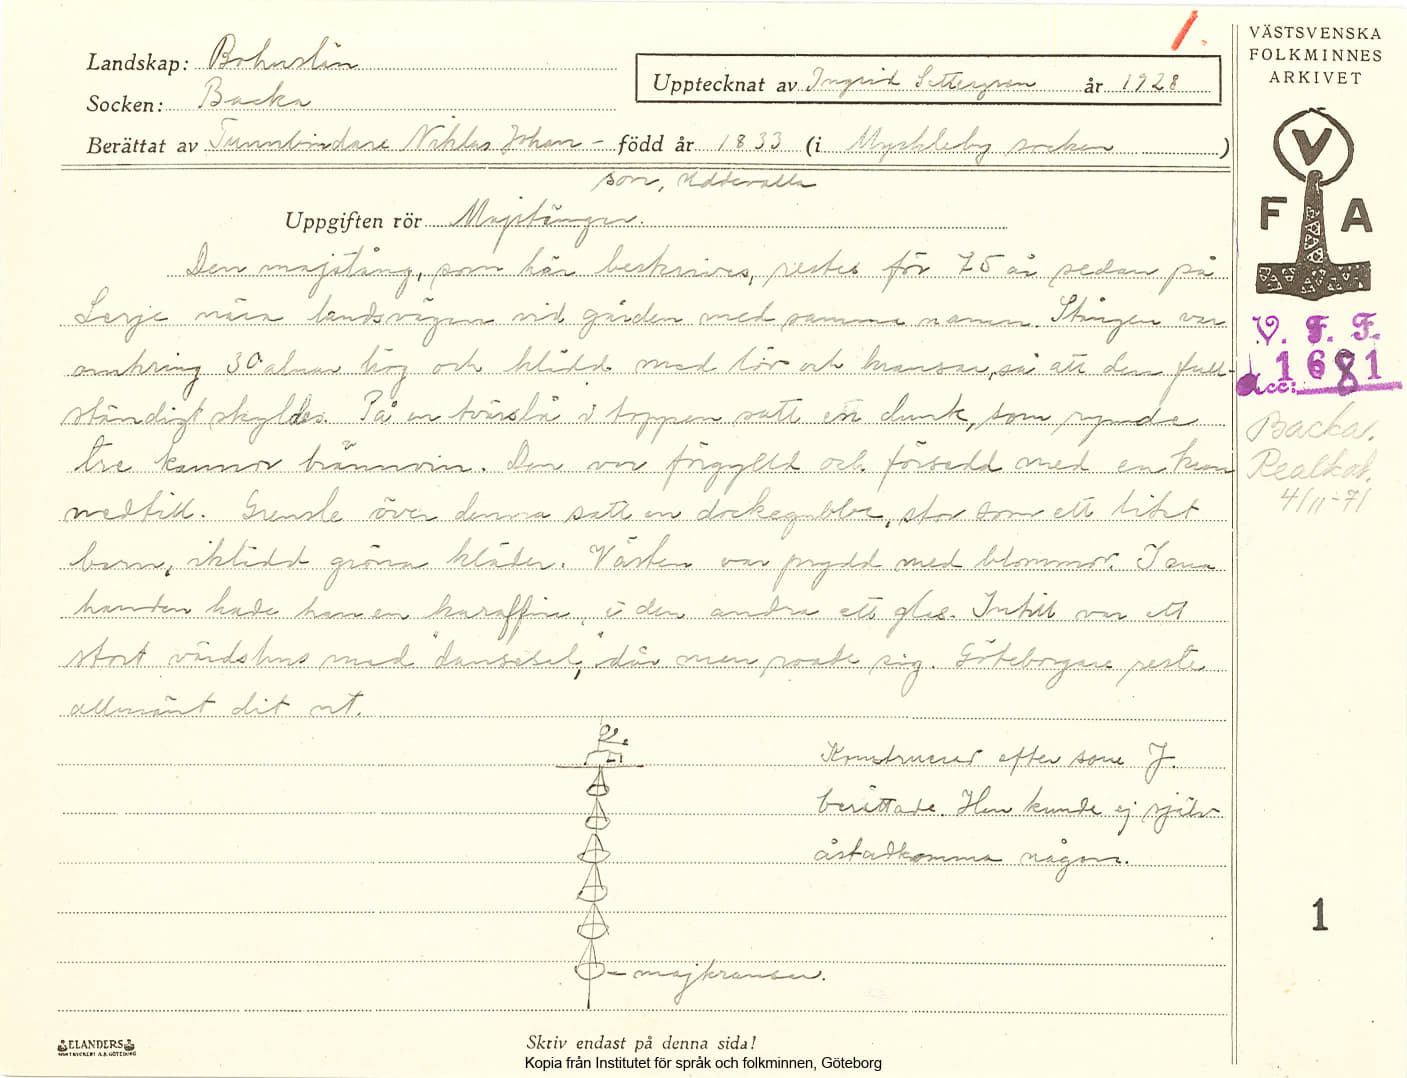 1.
VÄSTSVENSKA
FOLKMINNES
ARKIVET
V
F A
V. F. F.
Acc: 1681
Backa.
Realkat.
4/11-71
1
Landskap: Bohuslän
Socken: Backa
Upptecknat av Ingrid år 1928
Berättat av Tunnbindare Niklas Johan- född år 1833 (i Myckleby socken)
son, Uddevalla
Uppgiften rör Majstången.
Den majstång, som här beskrives, restes för 75 år sedan på
Lerje nära landsvägen vid gården med samma namn. Stången var
omkring 30 alnar hög och klädd med löv och kransar, så att den full-
ständigt skyldes. På en tvärslå i toppen satt en dunk, som rymde
tre kannor brännvin. Den var förgylld och försedd med en kran
nedtill. Grensle över denna satt en dockegubbe, stor som ett litet
barn, iklädd gröna kläder. Västen var prydd med blommor. I ena
handen hade han en karaffin, i den andra ett glas. Intill var ett
stort värdshus med "dansesal", där man roade sig. Göteborgare reste
allmänt dit ut.
Konstruerad efter som J.
berättade. Han kunde ej själv
åstadkomma någon.
- majkransar.
ELANDERS
GÖTEBORG
Skriv endast på denna sida!
Kopia från Institutet för språk och folkminnen, Göteborg